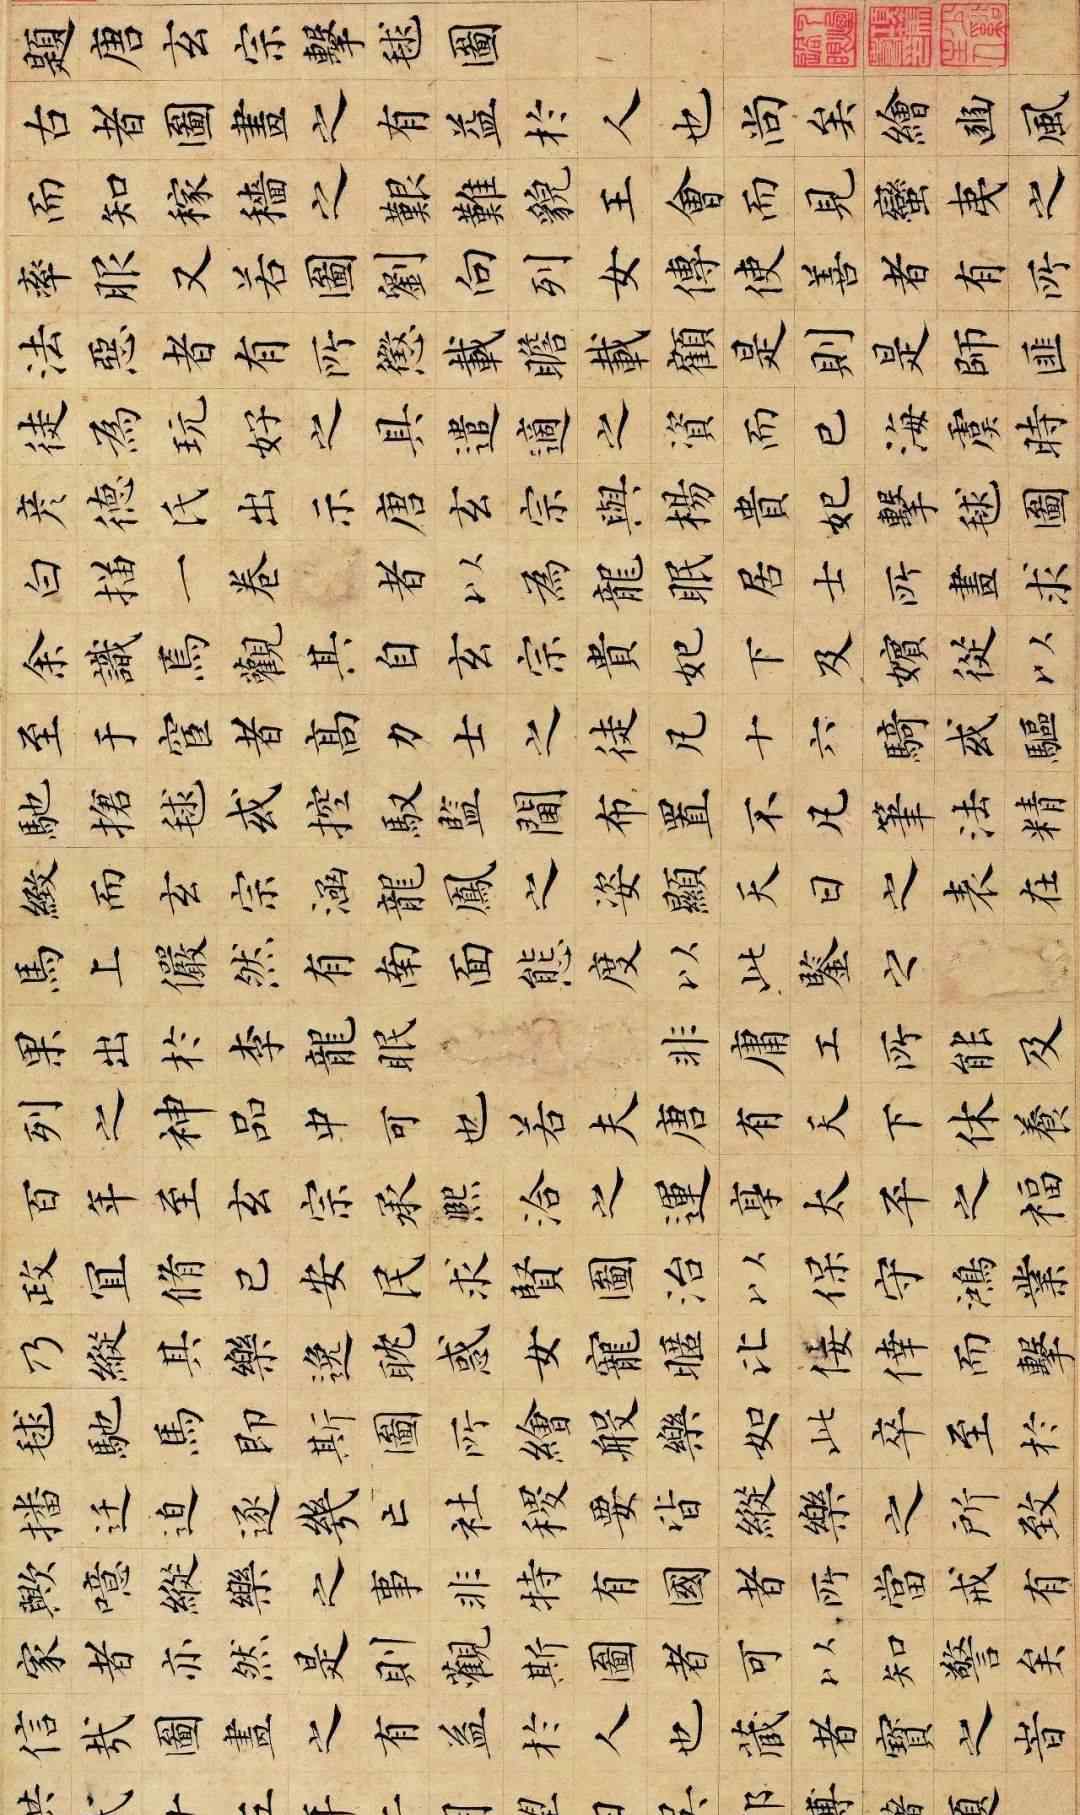 題唐玄宗擊毬圖
古者圖畫之有益於人也尚矣繪豳風
而知稼穡之艱難貌王會而見蠻夷之
率服又若圖劉向列女傳使善者有所
法惡者有所懲載瞻載顧是則是師匪
徒為玩好之具遣適之資而已海虞時
彦德氏出示唐玄宗與楊貴妃擊毬圖
白描一卷者以為龍眠居士所畫求
余識焉觀其自玄宗貴妃下及嬪從以
至于宦者高力士之徒凡十六騎或驅
馳搶毬或控馭監闘布置不凡筆法精
緻而玄宗涵龍鳳之姿顯天日之表在
馬上儼然有南面態度以此鑒之
果出於李龍眠非庸工所能及
列之神品中可也若夫唐有天下休養
百年至玄宗承熙洽之運享太平之福
政宜脩己安民求賢圖治以保守鴻業
乃縱其樂逸耽惑女寵暱比佞倖而擊
毬馳馬即斯圖所繪般樂如此卒至於
播迁迫逐幾亡社稷要皆縱樂之所致
歟噫縱樂之事非特有國者所當戒有
家者亦然是則觀斯圖者可以知警矣
信哉圖畫之有益於人也蔵者寶之旹